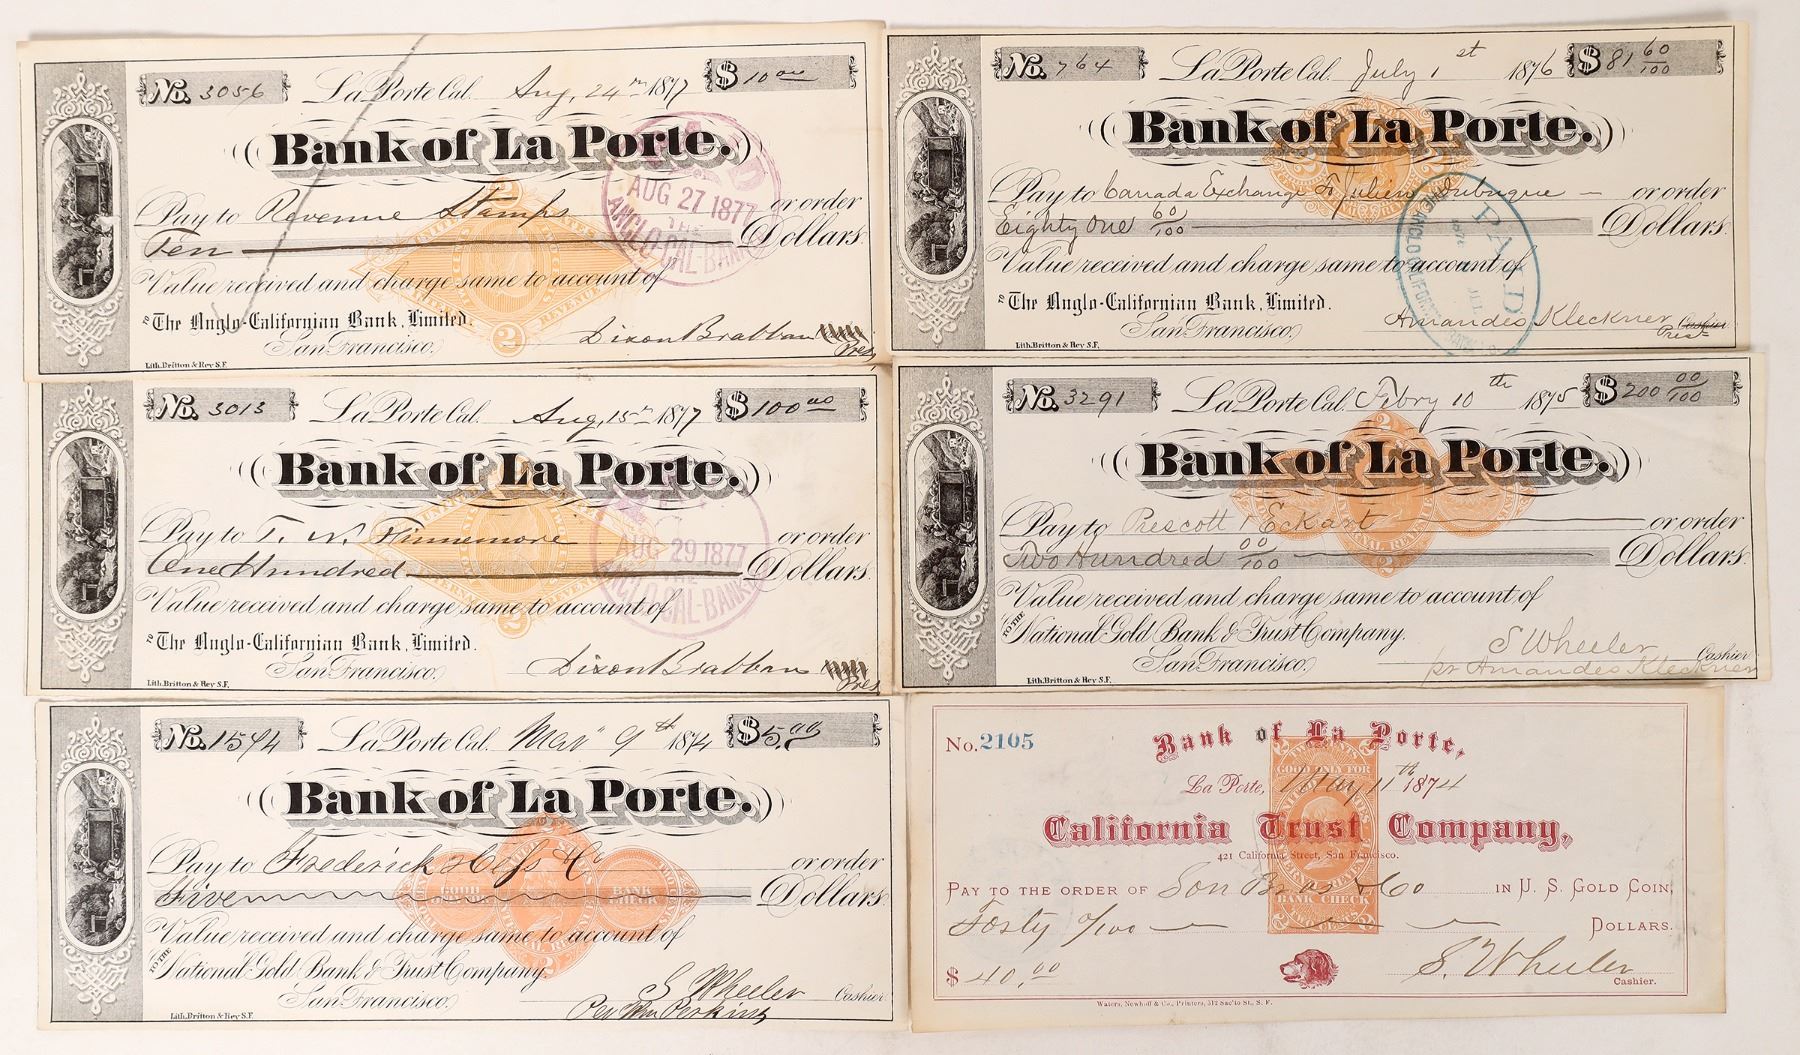 No. 3056 La Porte Cal. Aug, 24th 1877 $ 10 00
Bank of La Porte.
Pay to Revenue Stamps or order
Ten Dollars.
Value received and charge same to account of
TO The Anglo-Californian Bank, Limited.
San Francisco.
Dixon Brabban
Pres
Lith. Britton & Rey S.F.
AUG 27 1877
THE
ANGLO-CAL-BANK
2
No. 764 La Porte Cal. July 1st 1876 $ 81 60/100
Bank of La Porte.
Pay to Canada Exchange F Julien Dubuque or order
Eighty One 60/100 Dollars.
Value received and charge same to account of
TO The Anglo-Californian Bank, Limited.
San Francisco.
Amandes Kleckner Cashier
Prest
Lith. Britton & Rey S.F.
PAID
No. 3013 La Porte Cal. Aug, 15th 1877 $ 100 00
Bank of La Porte.
Pay to T. W. Finnemore or order
One Hundred Dollars.
Value received and charge same to account of
TO The Anglo-Californian Bank, Limited.
San Francisco.
Dixon Brabban
Pres
Lith. Britton & Rey S.F.
AUG 29 1877
THE
ANGLO-CAL-BANK
2
No. 3291 La Porte Cal. Febry 10th 1875 $ 200 00/100
Bank of La Porte.
Pay to Prescott & Eckart or order
Two Hundred 00/100 Dollars.
Value received and charge same to account of
TO THE National Gold Bank & Trust Company.
San Francisco.
S Wheeler Cashier
pr Amandes Kleckner
Lith. Britton & Rey S.F.
No. 1544 La Porte Cal. Mar 9th 1874 $ 5.00
Bank of La Porte.
Pay to Frederick Hess & Co or order
Five Dollars.
Value received and charge same to account of
TO THE National Gold Bank & Trust Company.
San Francisco.
S Wheeler Cashier
Per Wm Perkins
Lith. Britton & Rey S.F.
GOOD ONLY FOR BANK CHECK
No. 2105 Bank of La Porte,
La Porte, May 11th 1874
California Trust Company,
421 California Street, San Francisco.
PAY TO THE ORDER OF Son Bros & Co IN U. S. GOLD COIN,
Forty 0/100 DOLLARS.
$ 40.00 S. Wheeler
Cashier.
Waters, Newhoff & Co., Printers, 512 Sac'to St., S. F.
GOOD ONLY FOR
BANK CHECK